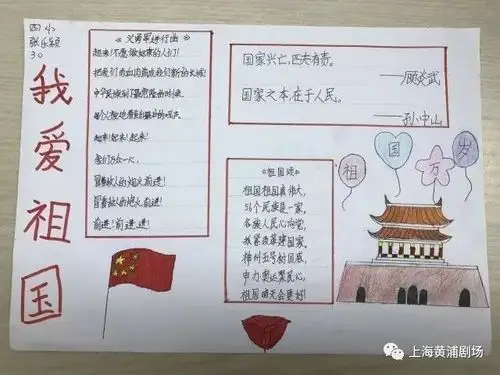 四(4)
张乐颖
30
我爱祖国
《义勇军进行曲》
起来!不愿做奴隶的人们!
把我们的血肉筑成我们新的长城!
中华民族到了最危险的时候,
每个人被迫着发出最后的吼声
起来!起来!起来!
我们万众一心,
冒着敌人的炮火前进!
冒着敌人的炮火前进!
前进!前进!进!
国家兴亡,匹夫有责。
——顾炎武
国家之本,在于人民。
——孙中山
《祖国颂》
祖国祖国真伟大,
56个民族是一家,
各族人民心向党,
改革建国家。
神州五号射回底,
申办奥运聚民心,
祖国明天会更好!
祖国万岁
上海黄浦剧场